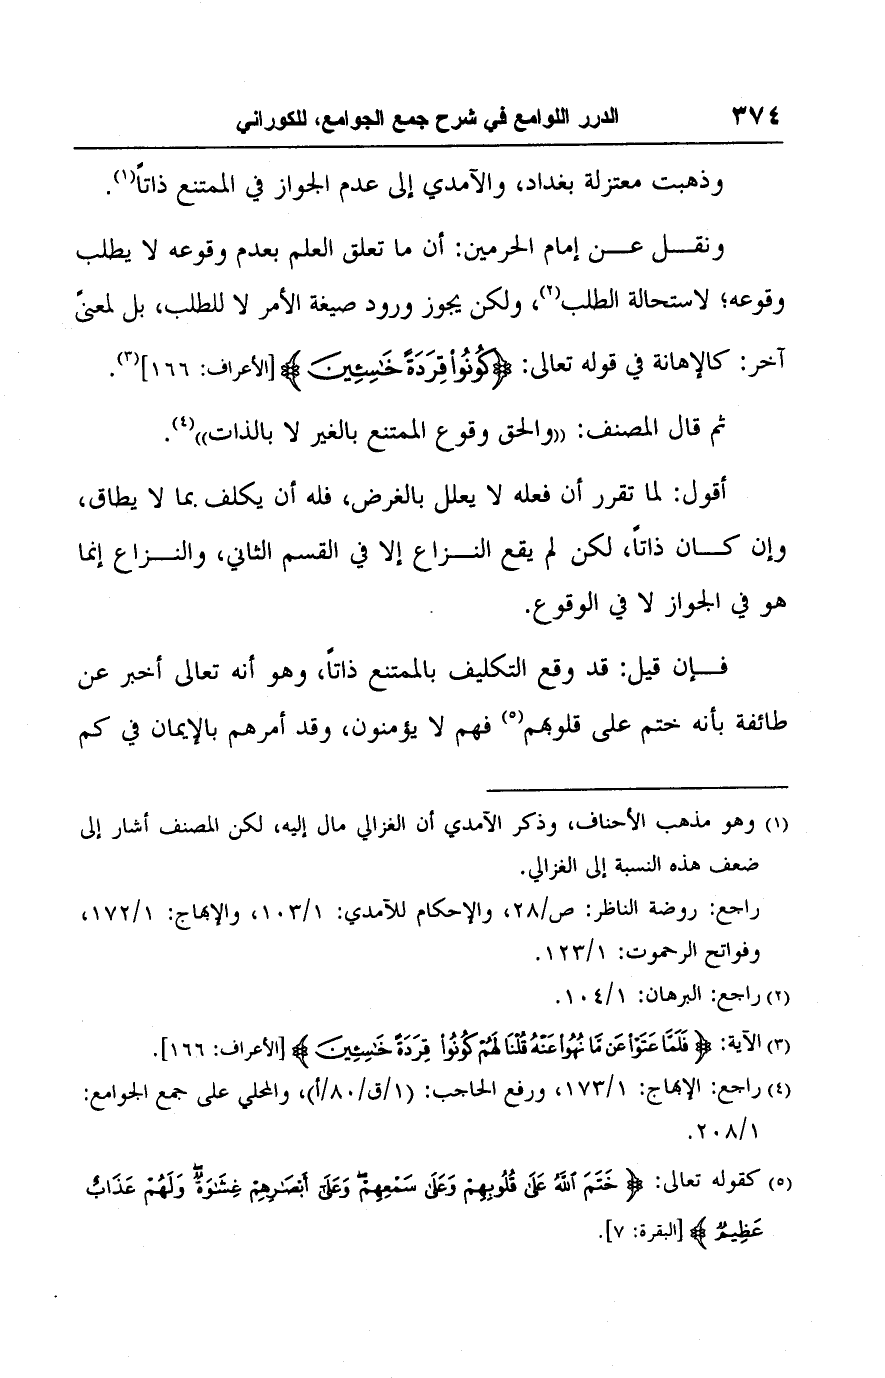 ٣٧٤ الدرر اللوامع في شرح جمع الجوامع، للكوراني
وذهبت معتزلة بغداد، والآمدي إلى عدم الجواز في الممتنع ذاتاً(١).
ونقل عن إمام الحرمين: أن ما تعلق العلم بعدم وقوعه لا يطلب
وقوعه؛ لاستحالة الطلب(٢)، ولكن يجوز ورود صيغة الأمر لا للطلب، بل لمعنىً
آخر: كالإهانة في قوله تعالى: ﴿كُونُوا۟ قِرَدَةً خَٰسِـِٔينَ﴾ [الأعراف: ١٦٦](٣).
ثم قال المصنف: ((والحق وقوع الممتنع بالغير لا بالذات))(٤).
أقول: لما تقرر أن فعله لا يعلل بالغرض، فله أن يكلف بما لا يطاق،
وإن كان ذاتاً، لكن لم يقع النـزاع إلا في القسم الثاني، والنـزاع إنما
هو في الجواز لا في الوقوع.
فإن قيل: قد وقع التكليف بالممتنع ذاتاً، وهو أنه تعالى أخبر عن
طائفة بأنه ختم على قلوبهم(٥) فهم لا يؤمنون، وقد أمرهم بالإيمان في كم
(١) وهو مذهب الأحناف، وذكر الآمدي أن الغزالي مال إليه، لكن المصنف أشار إلى
ضعف هذه النسبة إلى الغزالي.
راجع: روضة الناظر: ص/٢٨، والإحكام للآمدي: ١٠٣/١، والإبهاج: ١٧٢/١،
وفواتح الرحموت: ١٢٣/١.
(٢) راجع: البرهان: ١٠٤/١.
(٣) الآية: ﴿فَلَمَّا عَتَوْا۟ عَن مَّا نُهُوا۟ عَنْهُ قُلْنَا لَهُمْ كُونُوا۟ قِرَدَةً خَٰسِـِٔينَ﴾ [الأعراف: ١٦٦].
(٤) راجع: الإبهاج: ١٧٣/١، ورفع الحاجب: (١/ق/٨٠/أ)، والمحلي على جمع الجوامع:
٢٠٨/١.
(٥) كقوله تعالى: ﴿خَتَمَ ٱللَّهُ عَلَىٰ قُلُوبِهِمْ وَعَلَىٰ سَمْعِهِمْ ۖ وَعَلَىٰٓ أَبْصَٰرِهِمْ غِشَٰوَةٌ ۖ وَلَهُمْ عَذَابٌ
عَظِيمٌ﴾ [البقرة: ٧].